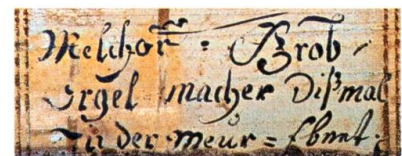 Melchor = Grob
orgel macher Dißmal
Zu der Meur = Ebnet.